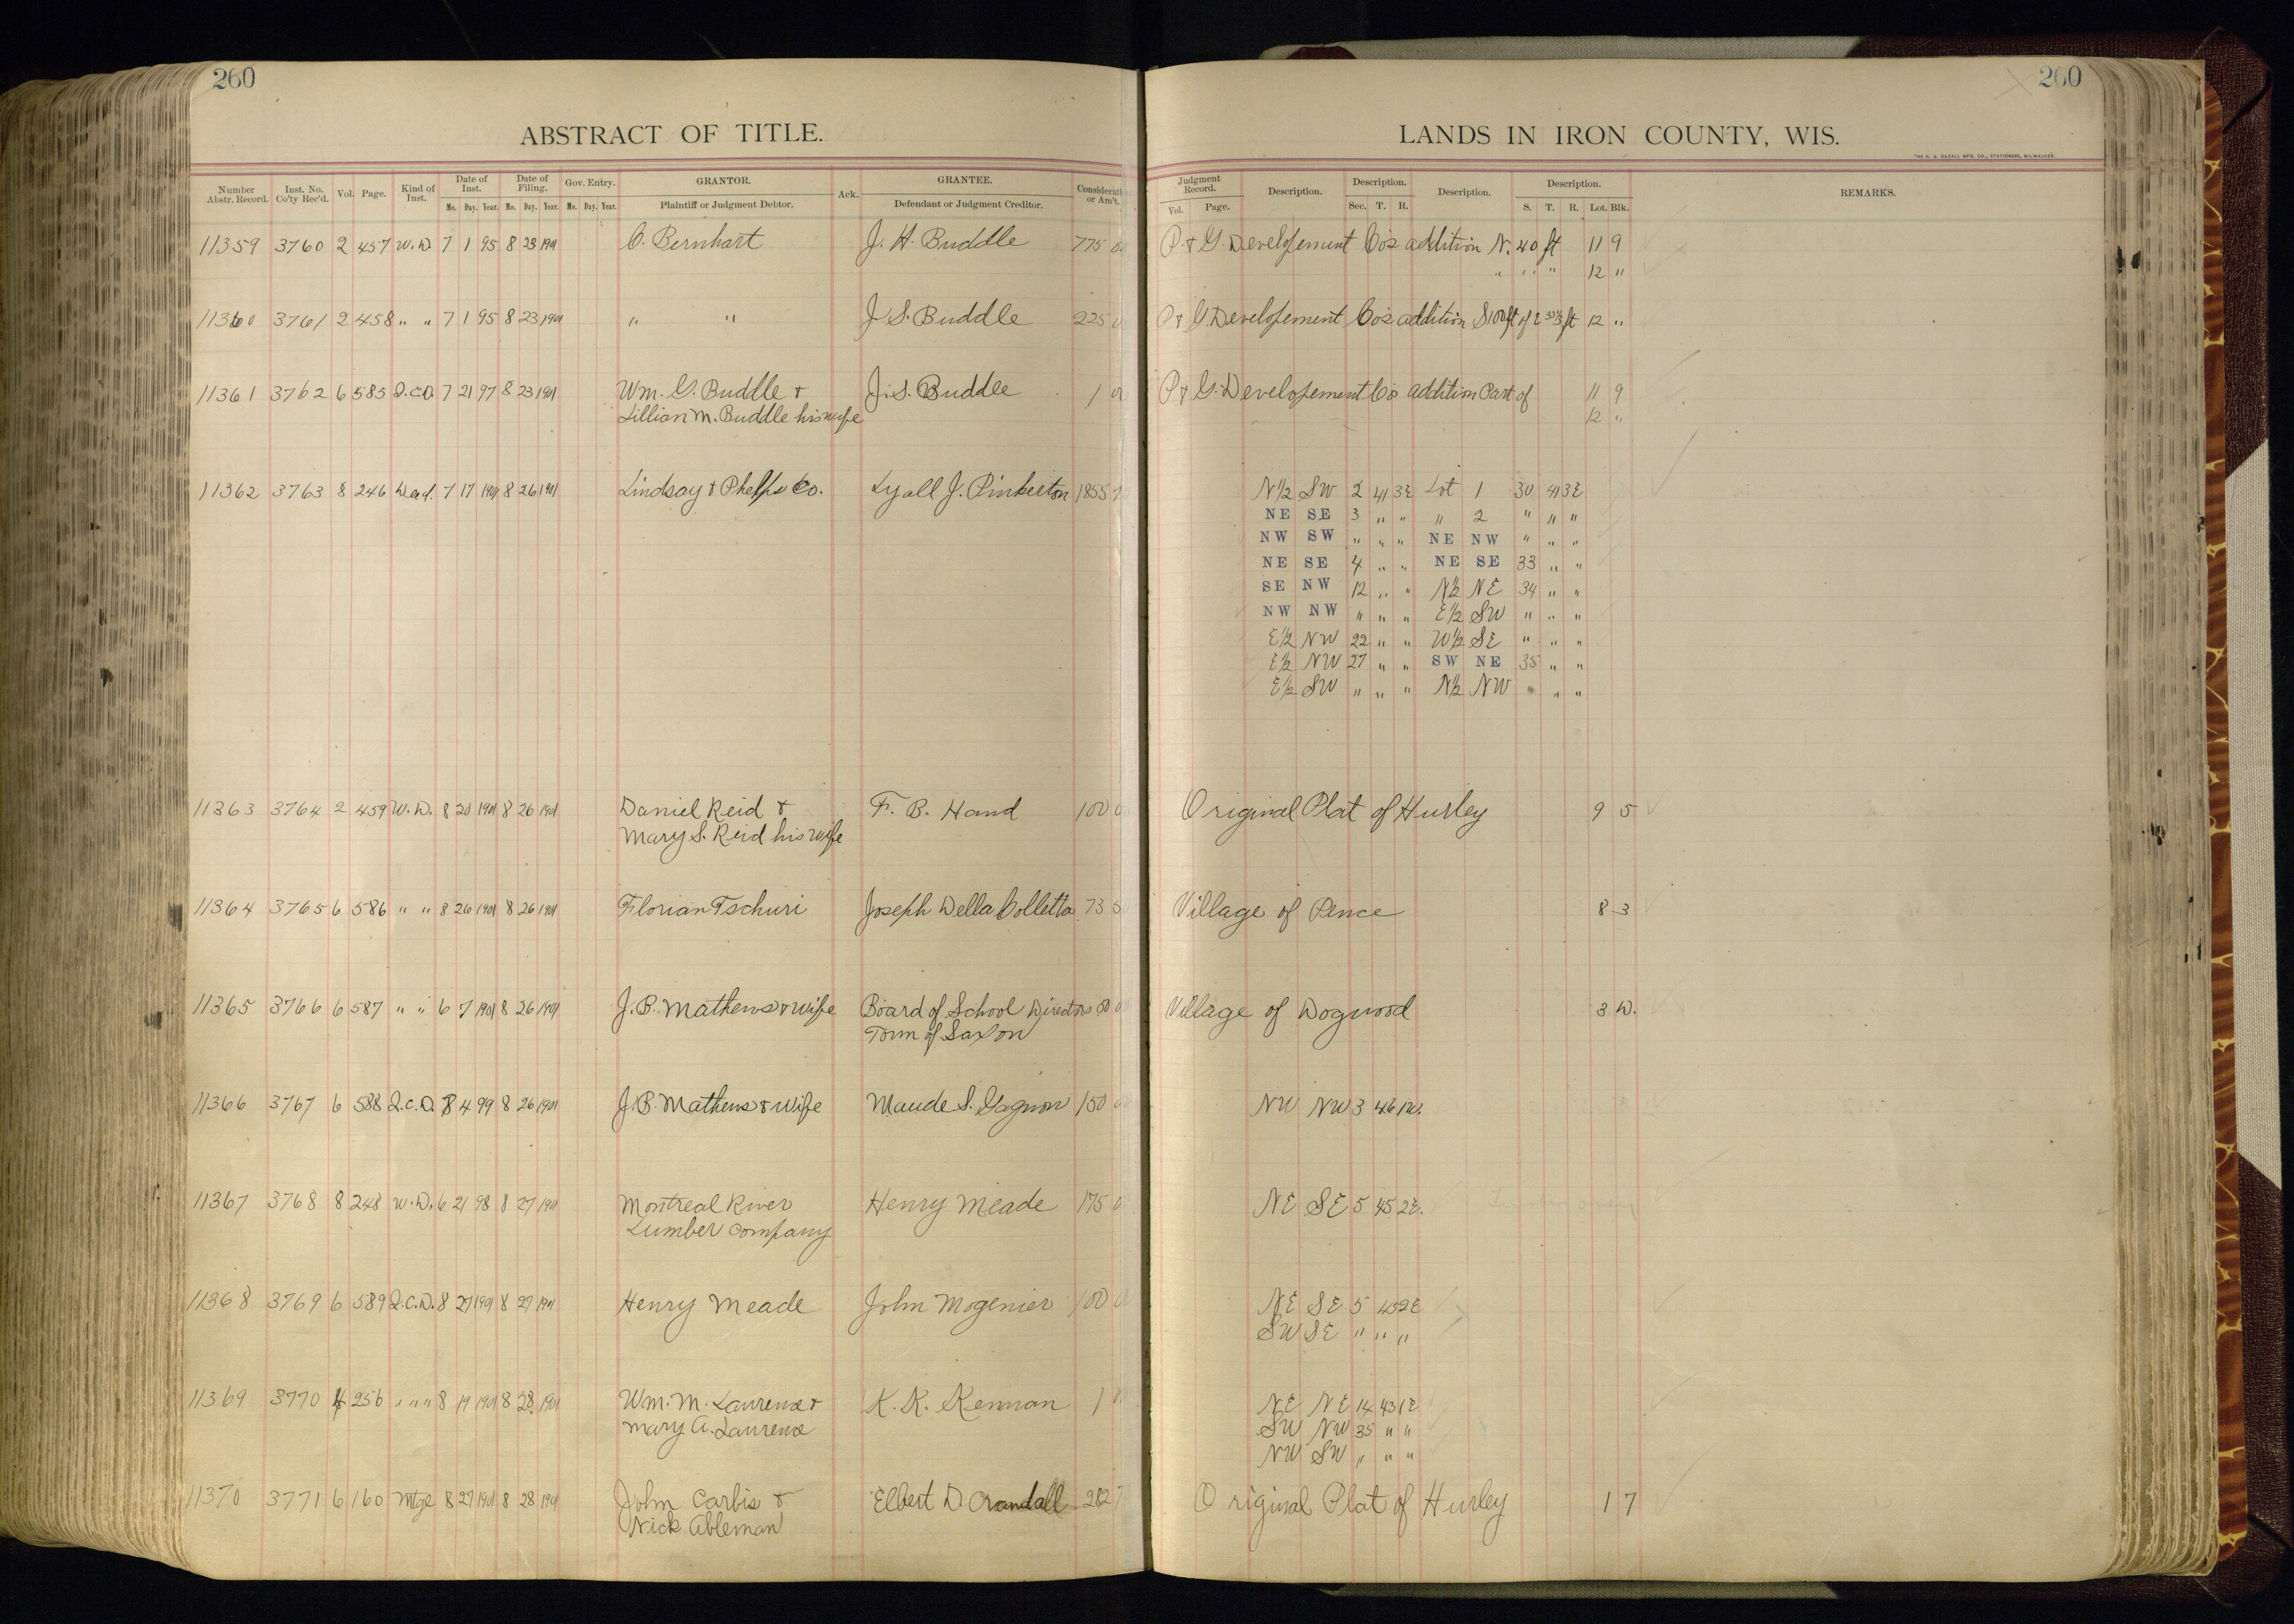 260
ABSTRACT OF TITLE.
Number Abstr. Record. Inst. No. Co'ty Rec'd. Vol. Page. Kind of Inst. Date of Inst. Mo. Day. Year. Date of Filing. Mo. Day. Year. Gov. Entry. Mo. Day. Year. GRANTOR. Plaintiff or Judgment Debtor. Ack. GRANTEE. Defendant or Judgment Creditor. Consideration or Am't.
11359 3760 2 457 W.D 7 1 95 8 23 1901 C. Bernhart J. H. Buddle 775
11360 3761 2 458 " " 7 1 95 8 23 1901 " " J S. Buddle 225
11361 3762 6 585 Q.C.D. 7 21 97 8 23 1901 Wm. G. Buddle & J. S. Buddle 1
Lillian M. Buddle his wife
11362 3763 8 246 Deed. 7 17 1901 8 26 1901 Lindsay & Phelps Co. Lyall J. Pinkerton 1855
11363 3764 2 459 W.D. 8 20 1901 8 26 1901 Daniel Reid & F. B. Hand 100
Mary S. Reid his wife
11364 3765 6 586 " " 8 26 1901 8 26 1901 Florian Tschuri Joseph Della Colletta 73
11365 3766 6 587 " " 6 7 1901 8 26 1901 J. B. Mathews & wife Board of School Directors 50
Town of Saxon
11366 3767 6 588 Q.C.D. 8 4 99 8 26 1901 J. B. Mathews & wife Maude S. Gagnon 150
11367 3768 8 248 W.D. 6 21 98 8 27 1901 Montreal River Henry Meade 175
Lumber Company
11368 3769 6 589 Q.C.D. 8 27 1901 8 27 1901 Henry Meade John Mogenier 100
11369 3770 4 256 " " " 8 19 1901 8 28 1901 Wm. M. Laurence & K. K. Kennan 1
Mary A. Laurence
11370 3771 6 160 Mtge 8 27 1901 8 28 1901 John Carbis & Elbert D. Crandall 282
Nick Ableman
260
LANDS IN IRON COUNTY, WIS.
Judgment Record. Vol. Page. Description. Description. Sec. T. R. Description. Description. S. T. R. Lot. Blk. REMARKS.
P & G. Developement Co's addition N. 40 ft 11 9
" " " 12 "
P & G Developement Co's addition S 100 ft of 12 "
P & G. Developement Co's addition Part of 11 9
12 "
N½ SW 2 41 3E Lot 1 30 41 3E
NE SE 3 " " " 2 " " "
NW SW " " " NE NW " " "
NE SE 4 " " NE SE 33 " "
SE NW 12 " " N½ NE 34 " "
NW NW " " " E½ SW " " "
E½ NW 22 " " W½ SE " " "
E½ NW 27 " " SW NE 35 " "
E½ SW " " " N½ NW " " "
Original Plat of Hurley 9 5
Village of Pence 8 3
Village of Dogwood 3 W.
NW NW 3 46 1W.
NE SE 5 45 2E.
NE SE 5 45 2E
SW SE " " "
NE NE 14 43 1E
SW NW 35 " "
NW SW " " "
Original Plat of Hurley 1 7